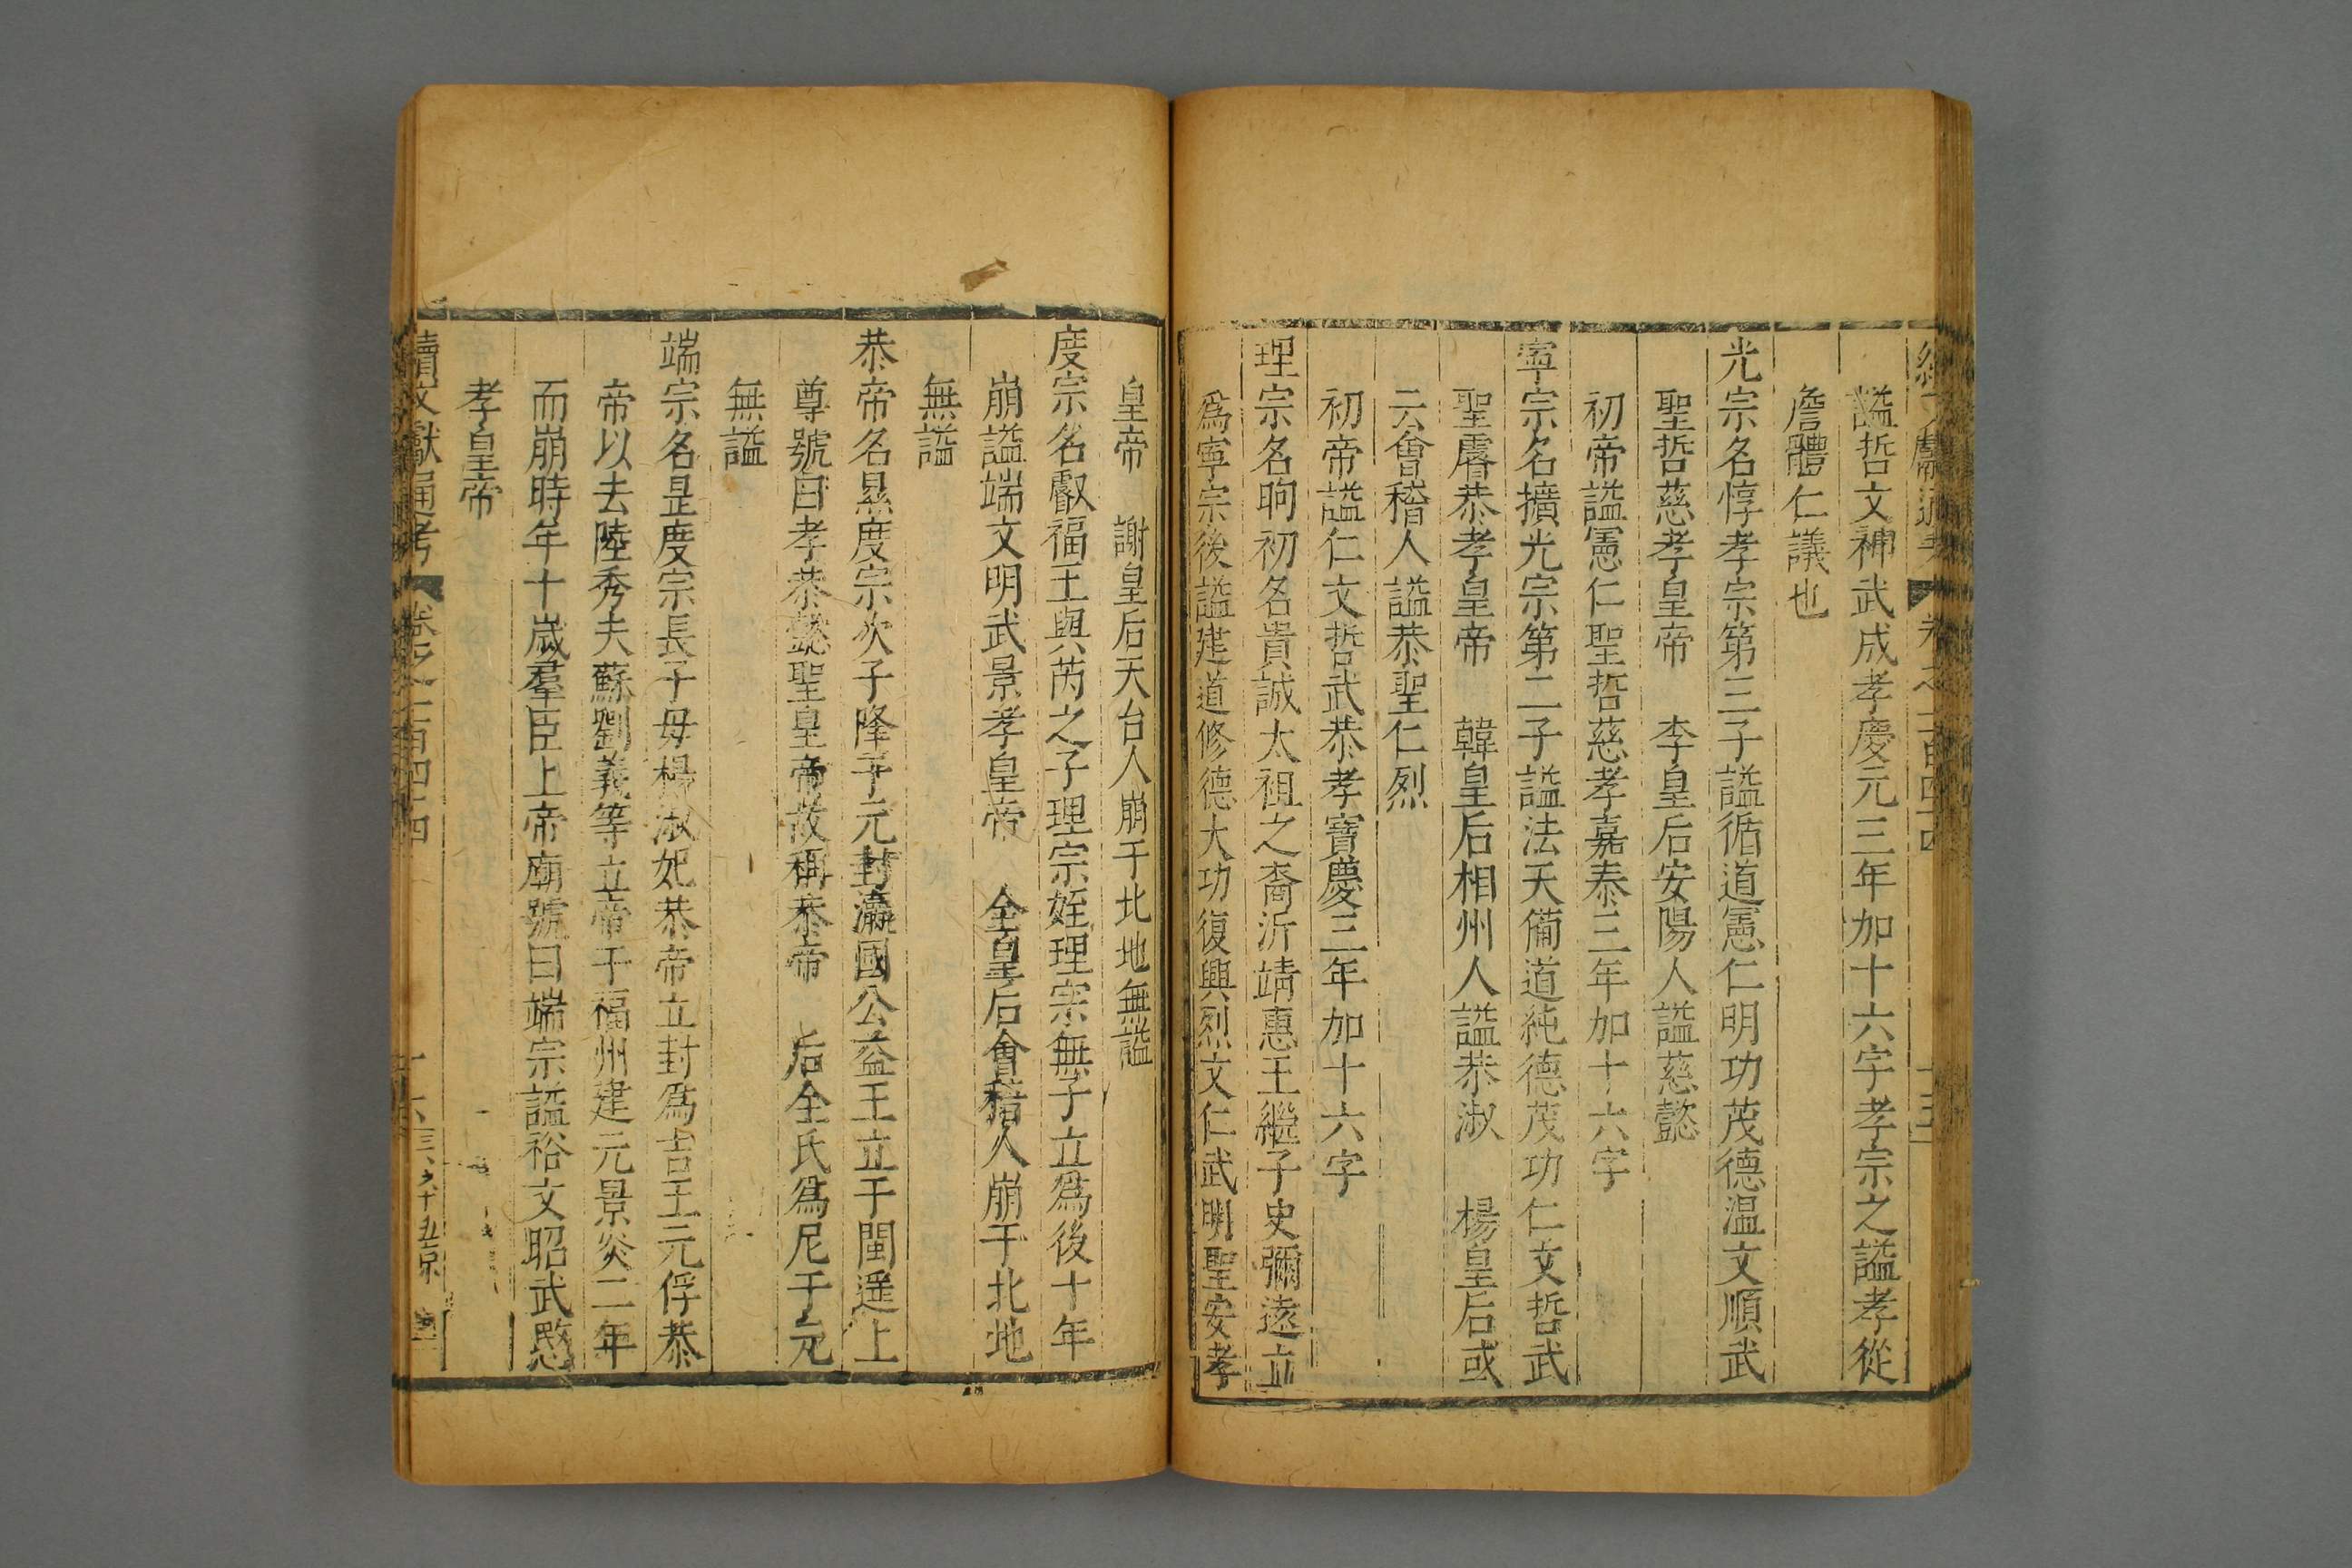 續文獻通考 卷之一百四十四 十五
謚哲文神武成孝慶元三年加十六字孝宗之謚孝從
詹體仁議也
光宗名惇孝宗第三子謚循道憲仁明功茂德温文順武
聖哲慈孝皇帝 李皇后安陽人謚慈懿
初帝謚憲仁聖哲慈孝嘉泰三年加十六字
寧宗名擴光宗第二子謚法天備道純德茂功仁文哲武
聖睿恭孝皇帝 韓皇后相州人謚恭淑 楊皇后或
云會稽人謚恭聖仁烈
初帝謚仁文哲武恭孝寶慶三年加十六字
理宗名昀初名貴誠太祖之裔沂靖惠王繼子史彌遠立
爲寧宗後謚建道修德大功復興烈文仁武明聖安孝
皇帝 謝皇后天台人崩于北地無謚
度宗名叡福王與芮之子理宗姪理宗無子立爲後十年
崩謚端文明武景孝皇帝 全皇后會稽人崩于北地
無謚
恭帝名㬎度宗次子降于元封瀛國公益王立于閩遥上
尊號曰孝恭懿聖皇帝故稱恭帝 后全氏爲尼于元
無謚
端宗名昰度宗長子母楊淑妃恭帝立封爲吉王元俘恭
帝以去陸秀夫蘇劉義等立帝于福州建元景炎二年
而崩時年十歲羣臣上帝廟號曰端宗謚裕文昭武愍
孝皇帝
續文獻通考 卷之一百四十四 十六